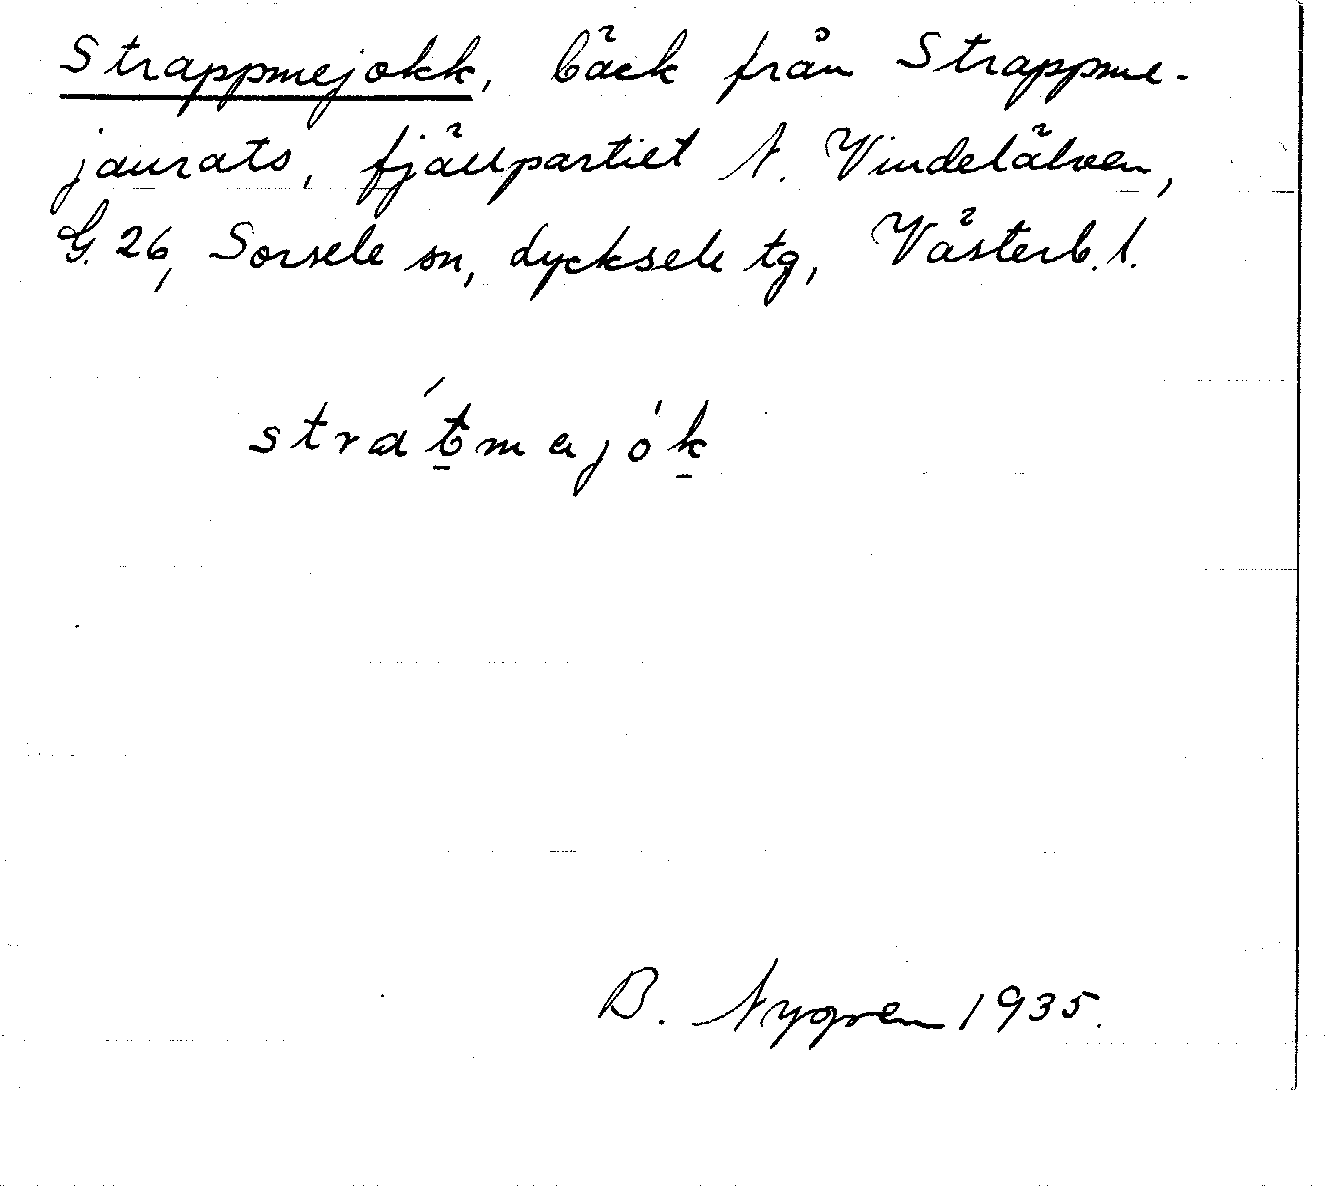 Strappmejokk, bäck från Strappme-
jaurats, fjällpartiet N. Vindelälven,
G. 26, Sorsele sn, Lycksele tg, Västerb. l.
B. Nygren 1935.